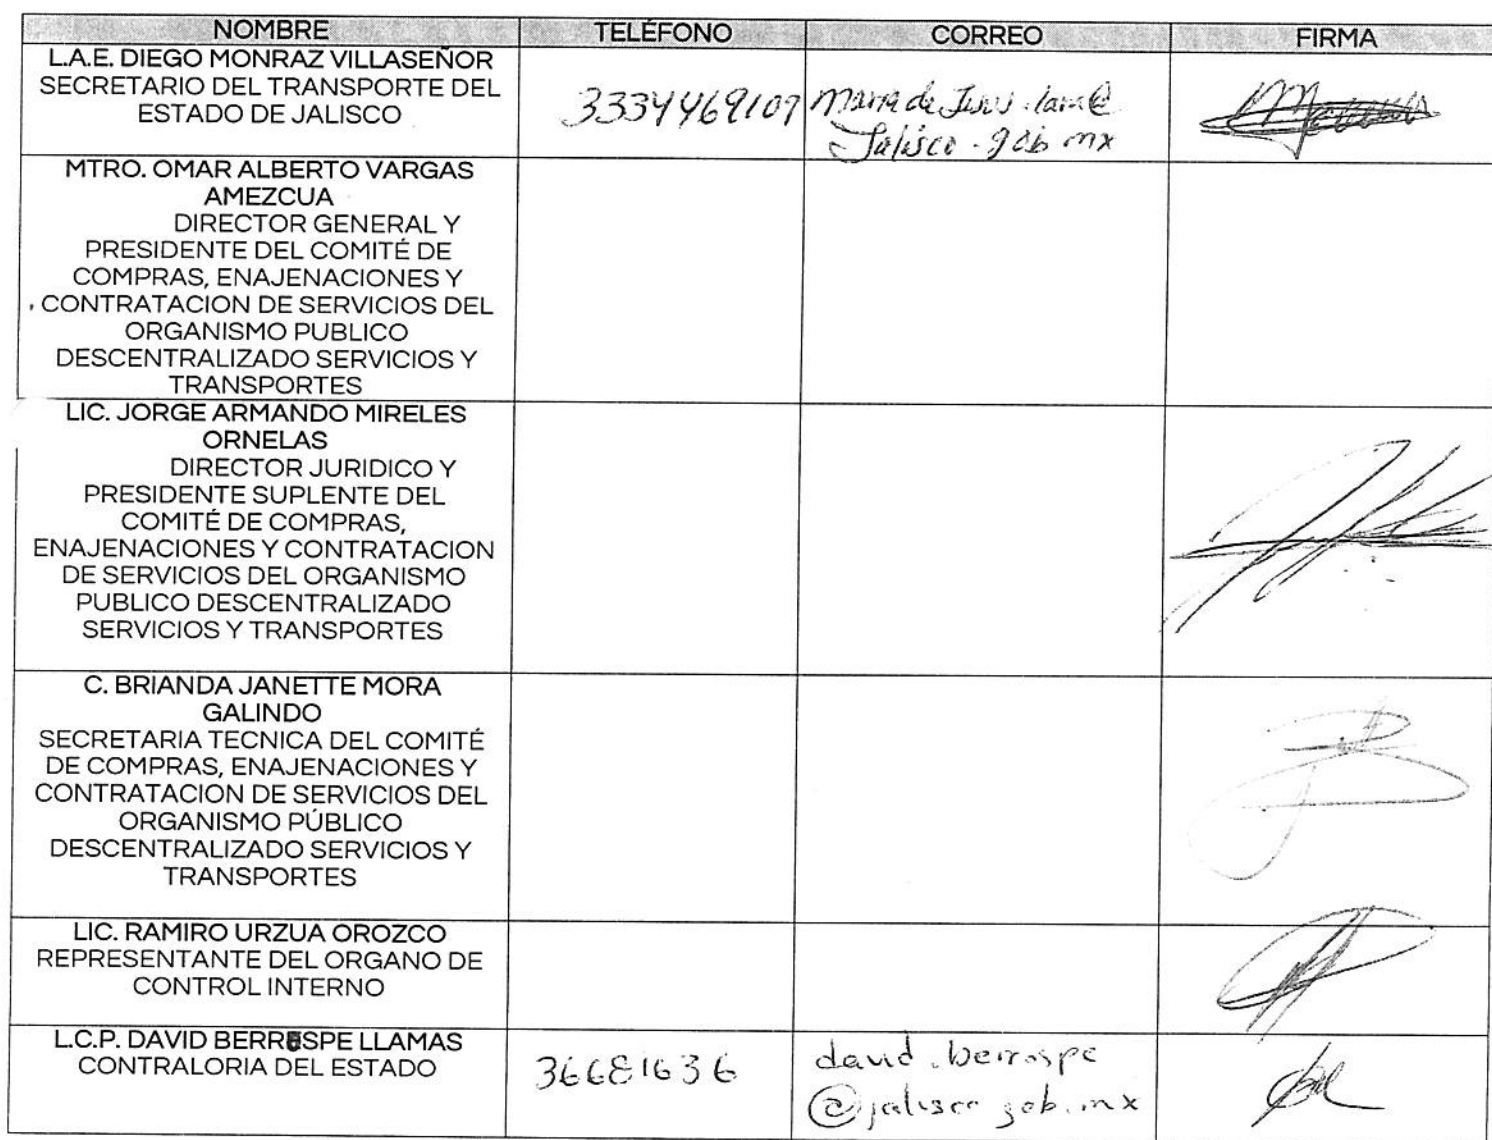 NOMBRE TELÉFONO CORREO FIRMA
L.A.E. DIEGO MONRAZ VILLASEÑOR
SECRETARIO DEL TRANSPORTE DEL
ESTADO DE JALISCO
3334469107 maria de Jesus.lara@
Jalisco.gob mx
MTRO. OMAR ALBERTO VARGAS
AMEZCUA
DIRECTOR GENERAL Y
PRESIDENTE DEL COMITÉ DE
COMPRAS, ENAJENACIONES Y
CONTRATACION DE SERVICIOS DEL
ORGANISMO PUBLICO
DESCENTRALIZADO SERVICIOS Y
TRANSPORTES
LIC. JORGE ARMANDO MIRELES
ORNELAS
DIRECTOR JURIDICO Y
PRESIDENTE SUPLENTE DEL
COMITÉ DE COMPRAS,
ENAJENACIONES Y CONTRATACION
DE SERVICIOS DEL ORGANISMO
PUBLICO DESCENTRALIZADO
SERVICIOS Y TRANSPORTES
C. BRIANDA JANETTE MORA
GALINDO
SECRETARIA TECNICA DEL COMITÉ
DE COMPRAS, ENAJENACIONES Y
CONTRATACION DE SERVICIOS DEL
ORGANISMO PÚBLICO
DESCENTRALIZADO SERVICIOS Y
TRANSPORTES
LIC. RAMIRO URZUA OROZCO
REPRESENTANTE DEL ORGANO DE
CONTROL INTERNO
L.C.P. DAVID LLAMAS
CONTRALORIA DEL ESTADO
36681636
david.berrospe
@jalisco gob.mx